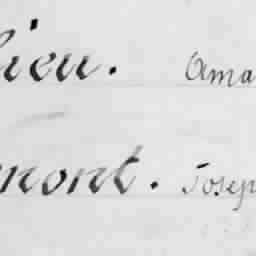 lieu. Ama
mont. Josep